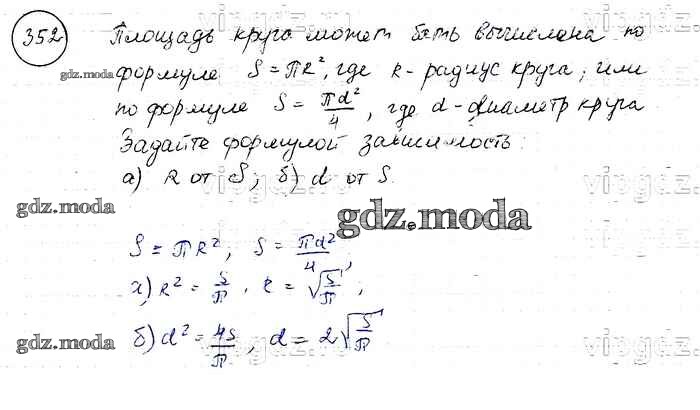 352
Площадь круга может быть вычислена по
формуле S = πR², где R - радиус круга; или
по формуле S = πd²/4, где d - диаметр круга
Задайте формулой зависимость:
а) R от S; б) d от S.
S = πR², S = πd²/4,
а) R² = S/π, R = √(S/π);
б) d² = 4S/π, d = 2√(S/π)
gdz.moda
gdz.moda
gdz.moda
gdz.moda